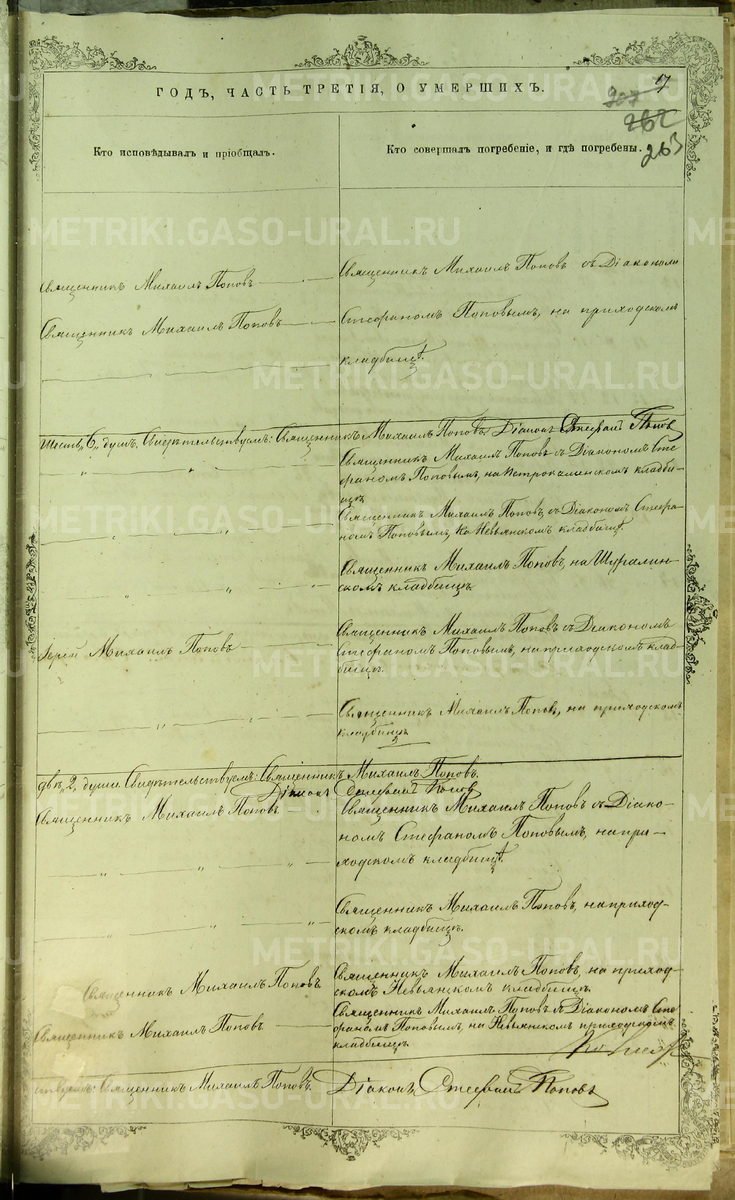 ГОДЪ, ЧАСТЬ ТРЕТІЯ, О УМЕРШИХЪ.
262
263
Кто исповѣдывалъ и пріобщалъ.
Кто совершалъ погребеніе, и гдѣ погребены.
Священникъ Михаилъ Поповъ
Священникъ Михаилъ Поповъ съ Діакономъ
Священникъ Михаилъ Поповъ
Стефаномъ Поповымъ, на приходскомъ
кладбищѣ.
6, душъ. Свидѣтельствуемъ: Священникъ Михаилъ Поповъ. Діаконъ Стефанъ Поповъ
Священникъ Михаилъ Поповъ съ Діакономъ Сте-
фаномъ Поповымъ, на кладби-
щѣ
Священникъ Михаилъ Поповъ, съ Діакономъ Стефа-
номъ Поповымъ, на Невьянскомъ кладбищѣ
Священникъ Михаилъ Поповъ, на Шуралин-
скомъ кладбищѣ.
Іерей Михаилъ Поповъ
Священникъ Михаилъ Поповъ съ Діакономъ
Стефаномъ Поповымъ, на приходскомъ клад-
бищѣ.
Священникъ Михаилъ Поповъ, на приходскомъ
кладбищѣ
двѣ, 2, души. Свидѣтельствуемъ: Священникъ Михаилъ Поповъ.
Діаконъ Стефанъ Поповъ
Священникъ Михаилъ Поповъ
Священникъ Михаилъ Поповъ съ Діако-
номъ Стефаномъ Поповымъ, на при-
ходскомъ кладбищѣ.
Священникъ Михаилъ Поповъ, на приход-
скомъ кладбищѣ.
Священникъ Михаилъ Поповъ
Священникъ Михаилъ Поповъ, на приход-
скомъ Невьянскомъ кладбищѣ.
Священникъ Михаилъ Поповъ
Священникъ Михаилъ Поповъ съ Діакономъ Сте-
фаномъ Поповымъ, на Невьянскомъ приходскомъ
кладбищѣ.
Священникъ Михаилъ Поповъ. Діаконъ Стефанъ Поповъ
METRIKI.GASO-URAL.RU